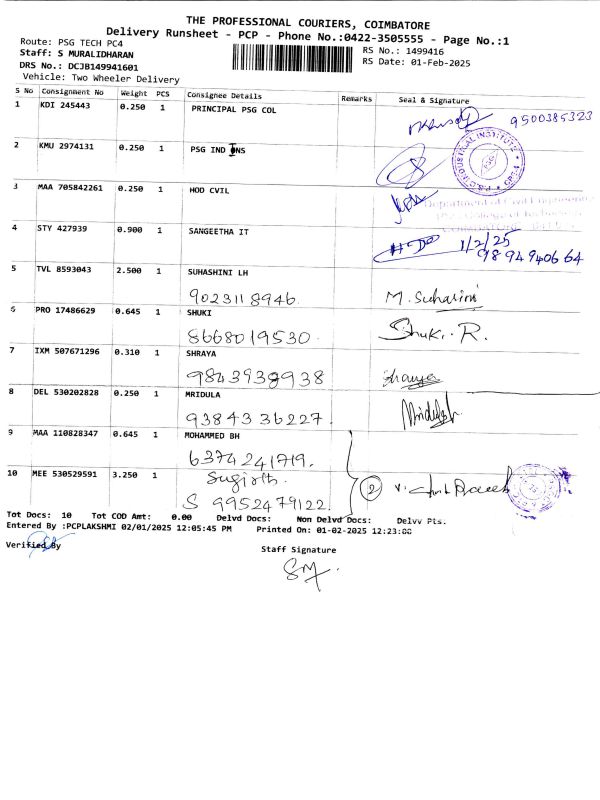 THE PROFESSIONAL COURIERS, COIMBATORE
Delivery Runsheet - PCP - Phone No.:0422-3505555 - Page No.:1
Route: PSG TECH PC4
Staff: S MURALIDHARAN
DRS No.: DCJB149941601
Vehicle: Two Wheeler Delivery
RS No.: 1499416
RS Date: 01-Feb-2025
S No Consignment No Weight PCS Consignee Details Remarks Seal & Signature
1 KDI 245443 0.250 1 PRINCIPAL PSG COL
9500385323
2 KMU 2974131 0.250 1 PSG IND NS
3 MAA 705842261 0.250 1 HOD CVIL
Department of Civil Engineering
4 STY 427939 0.900 1 SANGEETHA IT
1/2/25
9894940664
5 TVL 8593043 2.500 1 SUHASHINI LH
9023118946 M. Suharini
6 PRO 17486629 0.645 1 SHUKI
8668019530 Shuki. R.
7 IXM 507671296 0.310 1 SHRAYA
9843938938 Shanya
8 DEL 530202828 0.250 1 MRIDULA
9384336227 Mridulah
9 MAA 110828347 0.645 1 MOHAMMED BH
6374241719.
10 MEE 530529591 3.250 1 Sugirth
S 9952479122 2
Tot Docs: 10 Tot COD Amt: 0.00 Delvd Docs: Non Delvd Docs: Delvv Pts.
Entered By :PCPLAKSHMI 02/01/2025 12:05:45 PM Printed On: 01-02-2025 12:23:00
Verified By
Staff Signature